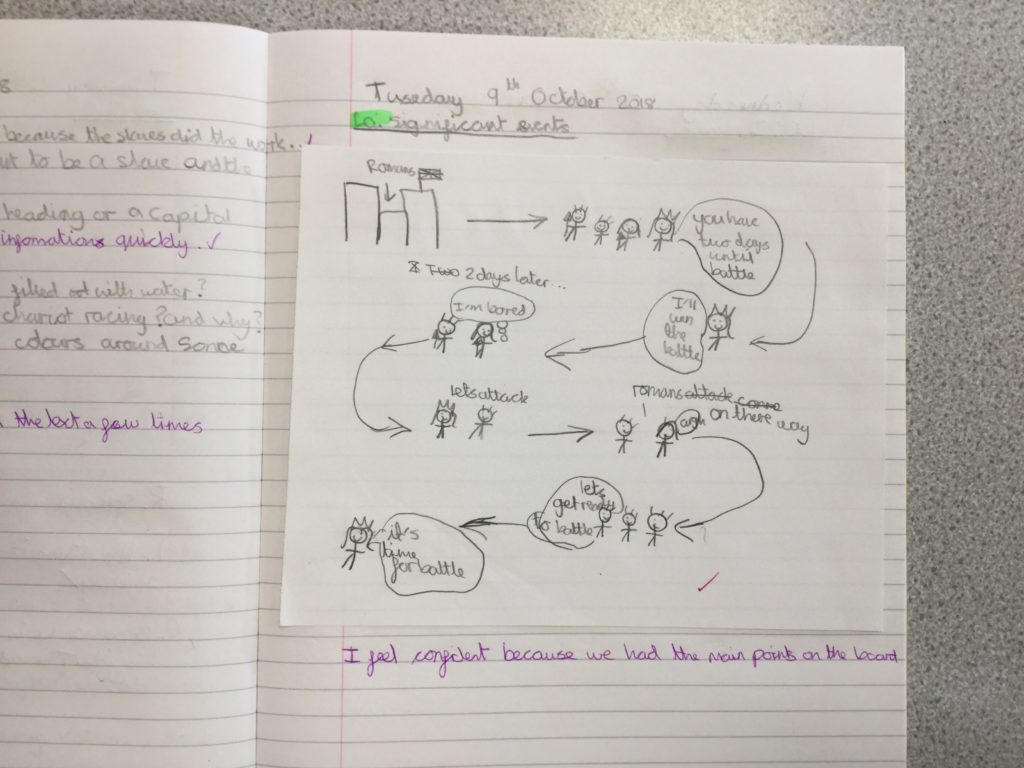 8
because the slaves did the work..
ut to be a slave and the
heading or a capital
infomations quickly.
filled out with water?
chariot racing? and why?
colours around Some
the text a few times
Tuseday 9th October 2018
Lo: significant events
Romans
you have
two days
until
battle
Two 2 days later...
I'm bored
I'll
win
the
battle
lets attack
romans attack come
on there way
argh
lets
get ready
to battle
it's
time
for battle
I feel confident because we had the main points on the board